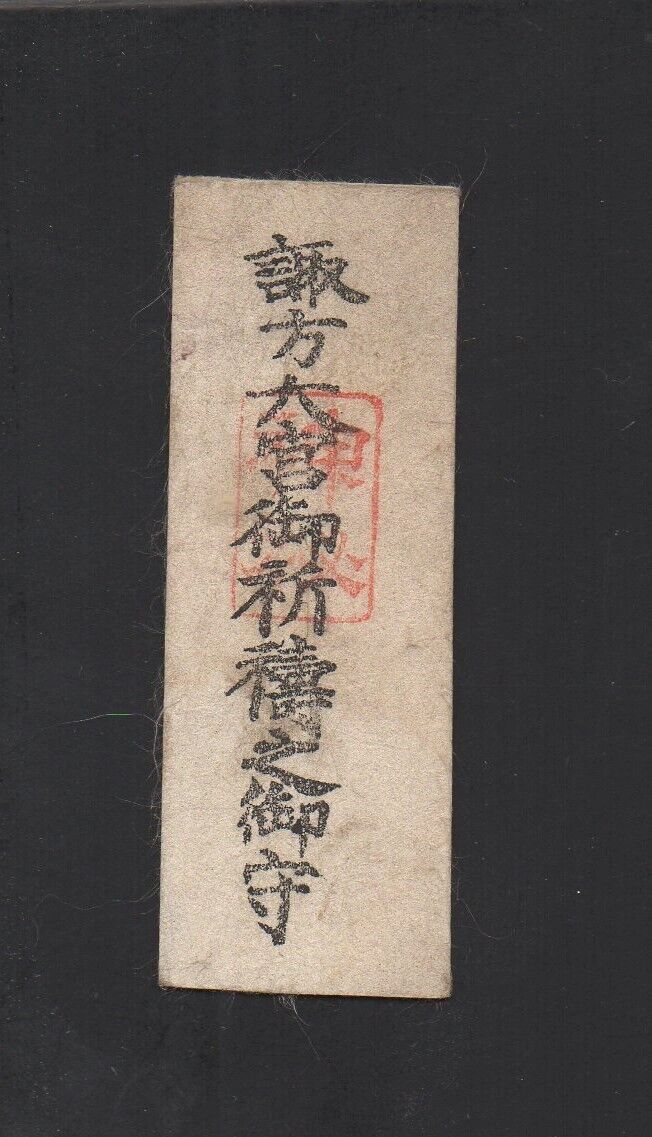 諏方大宮御祈禱之御守